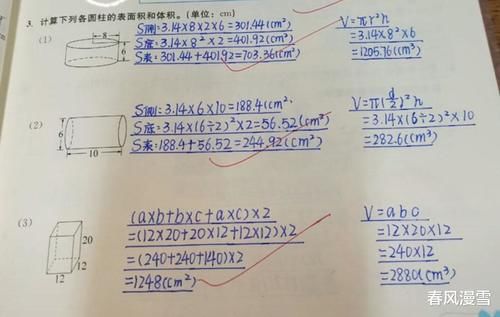 3. 计算下列各圆柱的表面积和体积。(单位：cm)
(1)
8
6
S侧=3.14×8×2×6=301.44(cm²)
S底=3.14×8²×2=401.92(cm²)
S表=301.44+401.92=703.36(cm²)
V=πr²h
=3.14×8²×6
=1205.76(cm³)
(2)
6
10
S侧=3.14×6×10=188.4(cm²
S底=3.14×(6÷2)²×2=56.52(cm²)
S表=188.4+56.52=244.92(cm²)
V=π(d/2)²h
=3.14×(6÷2)²×10
=282.6(cm³)
(3)
20
12
12
(a×b+b×c+a×c)×2
=(12×20+20×12+12×12)×2
=(240+240+140)×2
=1248(cm²)
V=abc
=12×20×12
=240×12
=2880(cm³)
春风漫雪